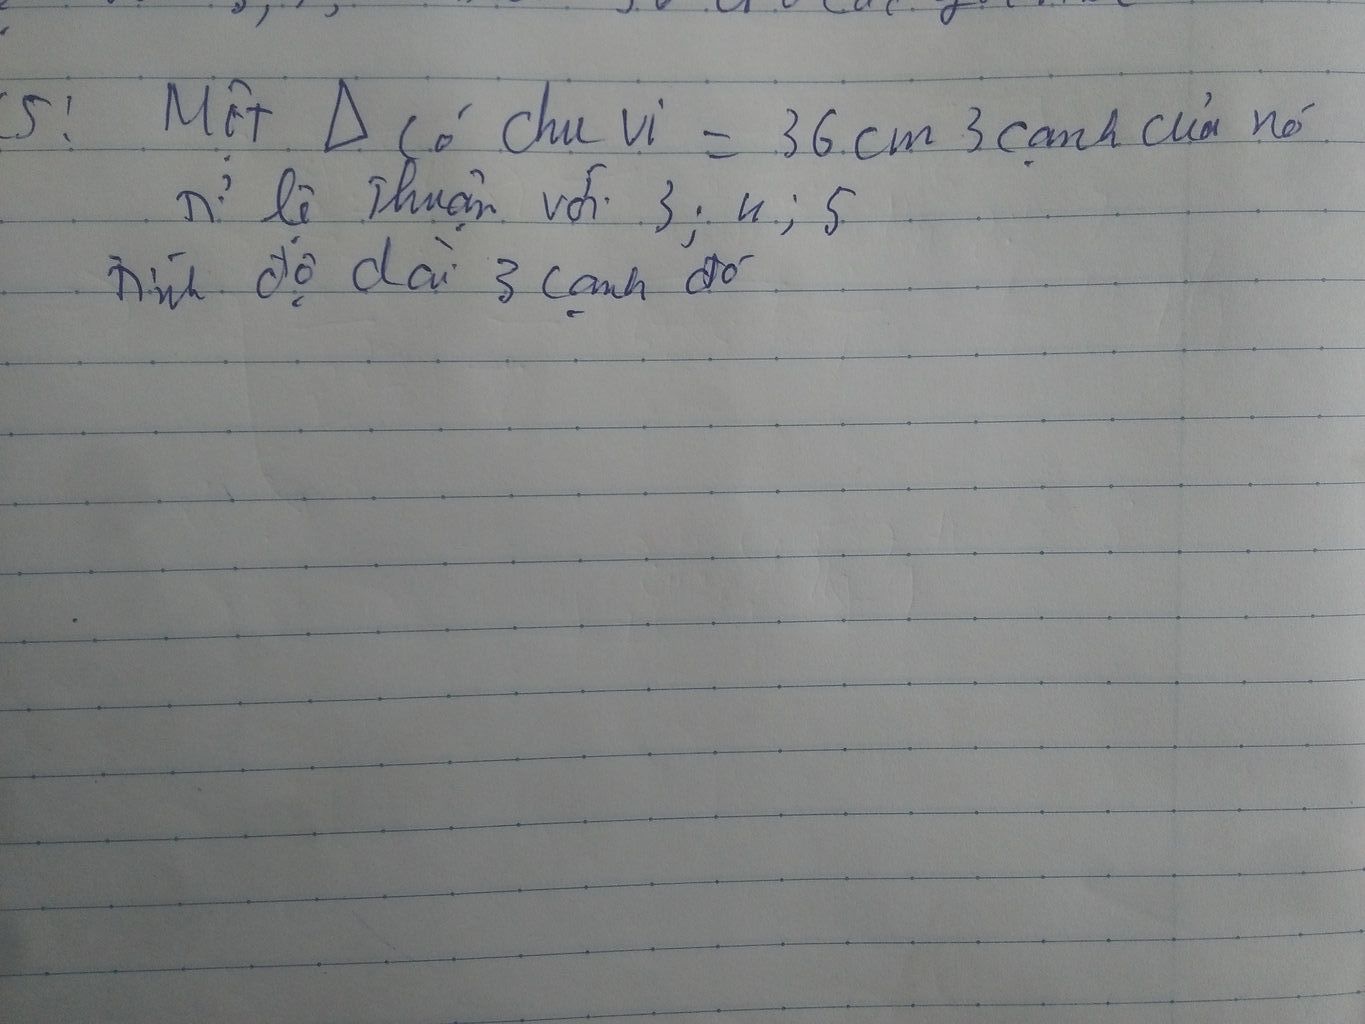 5: Một Δ có chu vi = 36 cm 3 cạnh của nó
tỉ lệ thuận với 3; 4; 5
Tính độ dài 3 cạnh đó